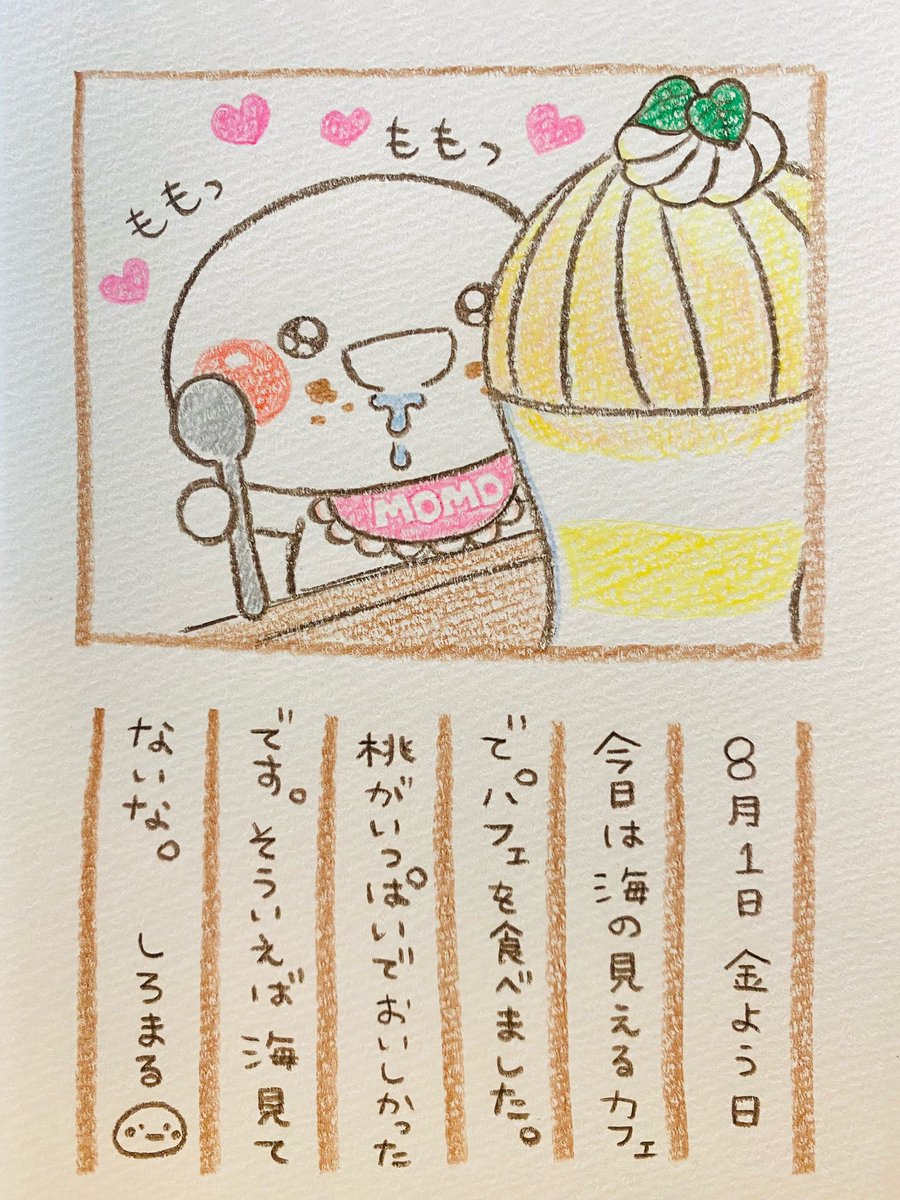 ももっ
ももっ
MOMO
8月1日 金よう日
今日は海の見えるカフェ
で。パフェを食べました。
桃がいっぱいでおいしかった
です。そういえば海見て
ないな。 しろまる